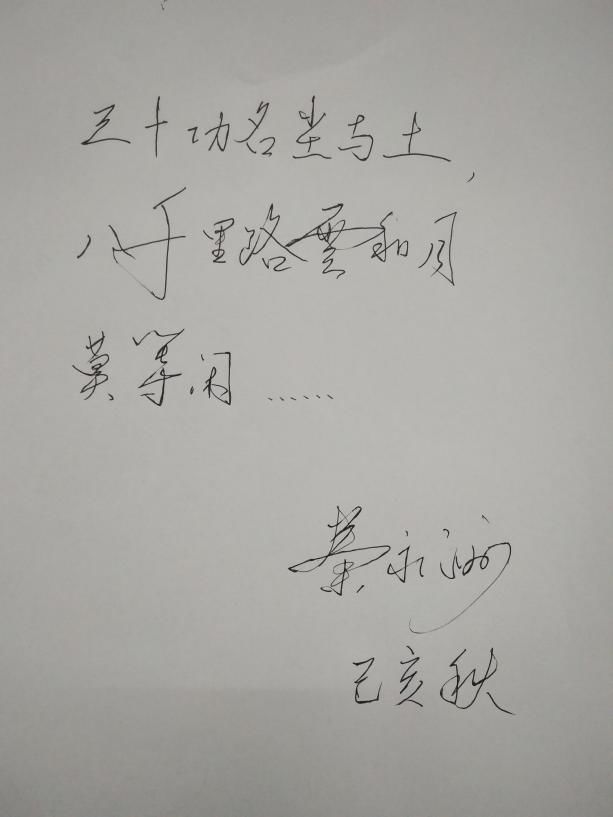 三十功名尘与土，
八千里路雲和月
莫等闲……
秦永洲
己亥秋